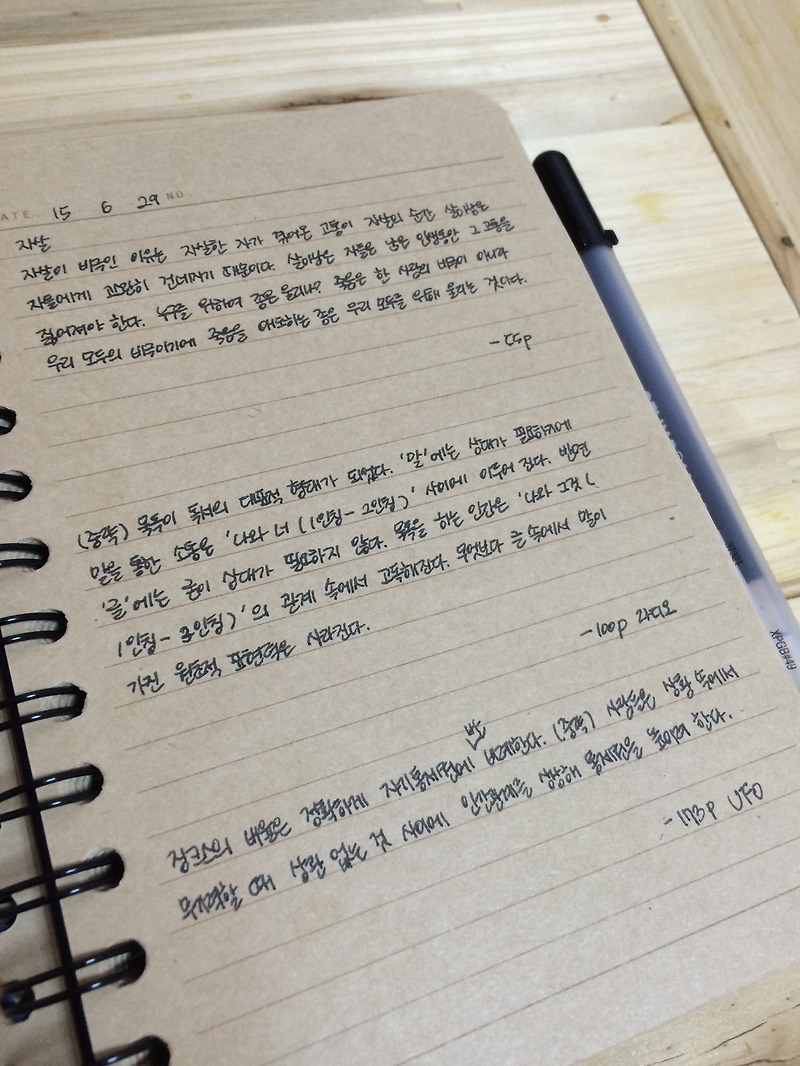 ATE. 15 6 29 NO.
자살
자살이 비극인 이유는 자살한 자가 겪어온 고통이 자살의 순간 살아남은
자들에게 고스란히 건네지기 때문이다. 살아남은 자들은 남은 인생동안 그 고통을
짊어져야 한다. 누구를 위하여 종은 울리나? 죽음은 한 사람의 비극이 아니라
우리 모두의 비극이기에 죽음을 애도하는 종은 우리 모두를 위해 울리는 것이다.
- 55p
(중략) 묵독이 독서의 대표적 형태가 되었다. '말'에는 상대가 필요하기에
말을 통한 소통은 '나와 너 (1인칭-2인칭)' 사이에 이루어 진다. 반면
'글'에는 굳이 상대가 필요하지 않다. 묵독을 하는 인간은 '나와 그것 (
1인칭-3인칭)'의 관계 속에서 고독해진다. 무엇보다 글 속에서 말이
가진 원초적 표현력은 사라진다.
- 100p 라디오
반
정크스의 비율은 정확하게 자기통제력에 비례한다. (중략) 사람들은 상황 속에서
무기력할 때 상관 없는 것 사이에 인간관계를 상상해 통제력을 높이려 한다.
- 173p UFO
XPGB#49